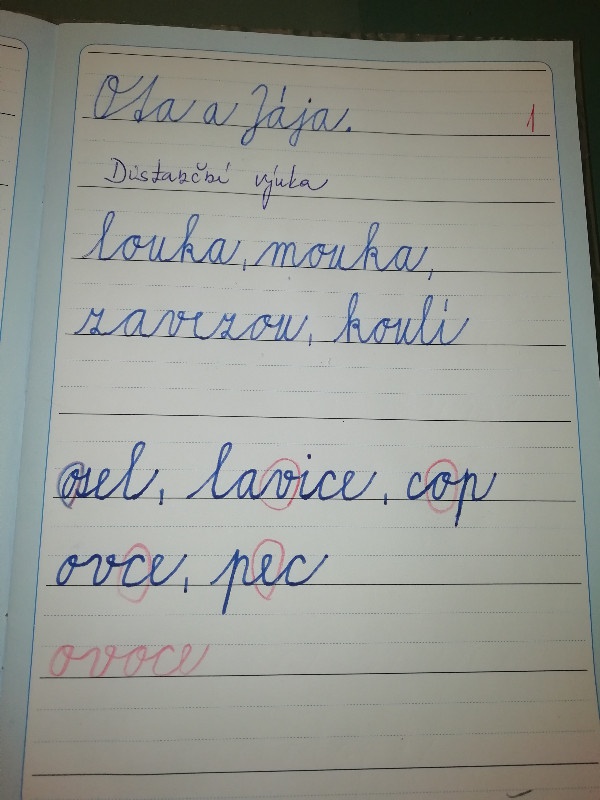 Ota a Jája. 1
Distanční výuka
louka, mouka,
zavezou, koulí
osel, lavice, cop
ovce, pec
ovoce